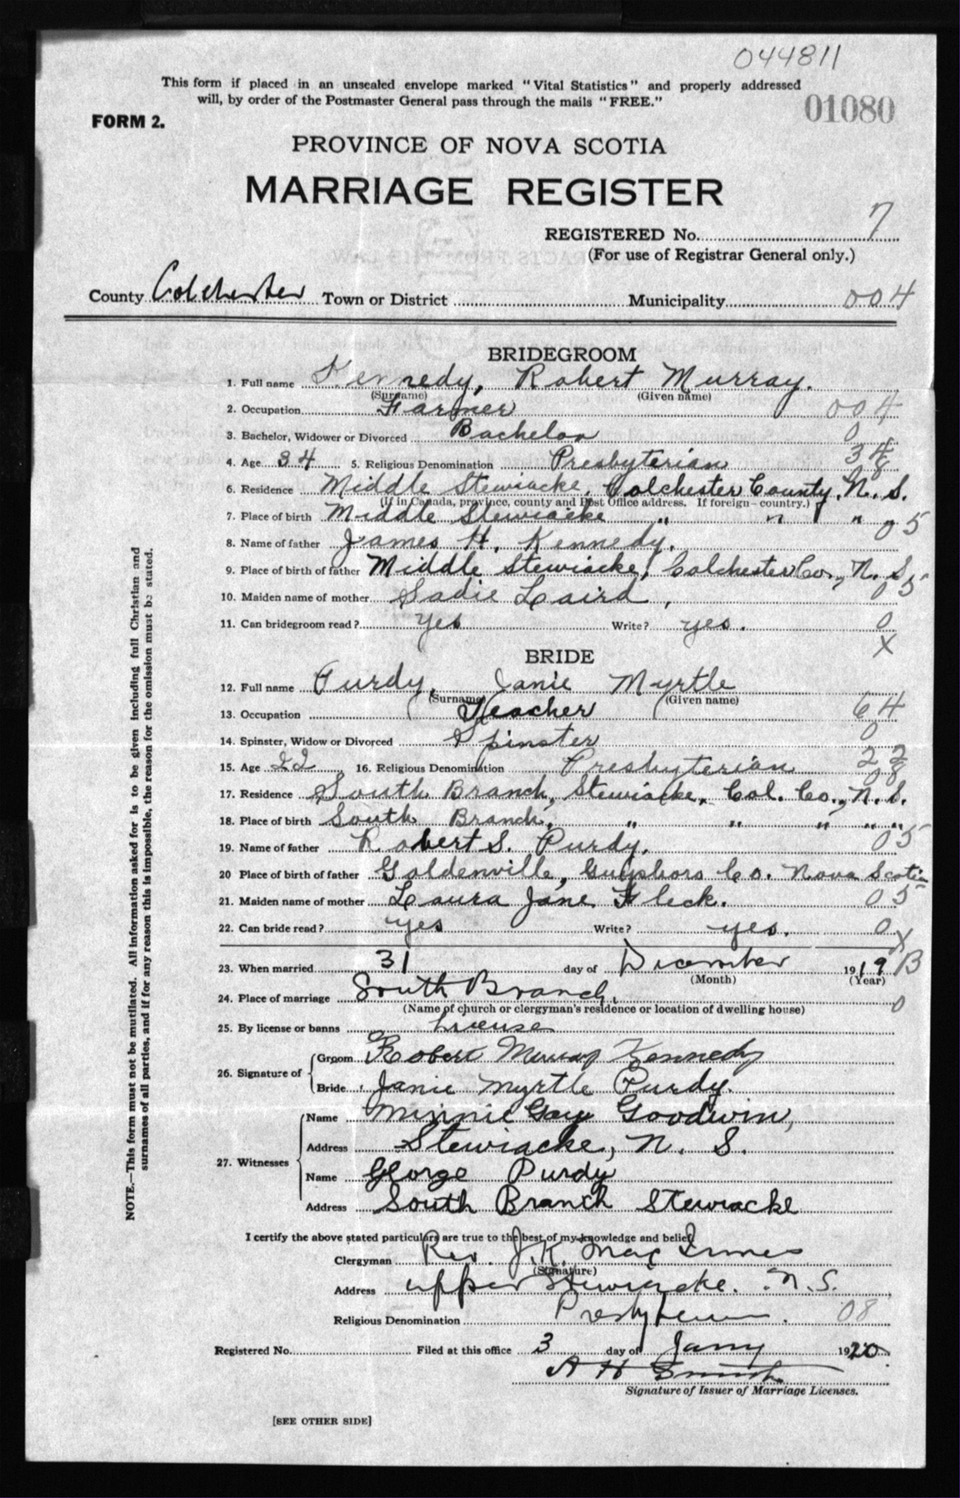 044811
This form if placed in an unsealed envelope marked "Vital Statistics" and properly addressed
will, by order of the Postmaster General pass through the mails "FREE."
01080
FORM 2.
PROVINCE OF NOVA SCOTIA
MARRIAGE REGISTER
REGISTERED No. 7
(For use of Registrar General only.)
County Colchester Town or District Municipality 004
BRIDEGROOM
1. Full name Kennedy, Robert Murray.
(Surname) (Given name)
2. Occupation Farmer 004
3. Bachelor, Widower or Divorced Bachelor 0
4. Age 34 5. Religious Denomination Presbyterian 34
8
6. Residence Middle Stewiacke, Colchester County, N. S.
(If in Canada, province, county and Post Office address. If foreign—country.)
7. Place of birth Middle Stewiacke " " " " 05
8. Name of father James H. Kennedy.
9. Place of birth of father Middle Stewiacke, Colchester Co., N. S.
05
10. Maiden name of mother Sadie Laird,
11. Can bridegroom read? yes Write? yes. 0
X
BRIDE
12. Full name Purdy, Janie Myrtle
(Surname) (Given name)
13. Occupation Teacher 64
14. Spinster, Widow or Divorced Spinster 0
15. Age 22 16. Religious Denomination Presbyterian 22
08
17. Residence South Branch, Stewiacke, Col. Co., N. S.
18. Place of birth South Branch, " " " "
19. Name of father Robert S. Purdy. 05
20 Place of birth of father Goldenville, Guysboro Co. Nova Scotia
21. Maiden name of mother Laura Jane Fleck. 05
22. Can bride read? yes Write? yes. 0
X
23. When married 31 day of December 1919 B
(Month) (Year)
24. Place of marriage South Branch. 0
(Name of church or clergyman's residence or location of dwelling house)
25. By license or banns License
26. Signature of Groom Robert Murray Kennedy
Bride Janie Myrtle Purdy.
27. Witnesses Name Minnie Gay Goodwin,
Address Stewiacke, N. S.
Name George Purdy
Address South Branch Stewiacke
I certify the above stated particulars are true to the best of my knowledge and belief
Clergyman Rev. J. K. MacInnes
(Signature)
Address Upper Stewiacke. N. S.
Religious Denomination Presbyterian. 08
Registered No. Filed at this office 3 day of Janry 1920
A H Smith
Signature of Issuer of Marriage Licenses.
[SEE OTHER SIDE]
NOTE.—This form must not be mutilated. All information asked for is to be given including full Christian and
surnames of all parties, and if for any reason this is impossible, the reason for the omission must be stated.